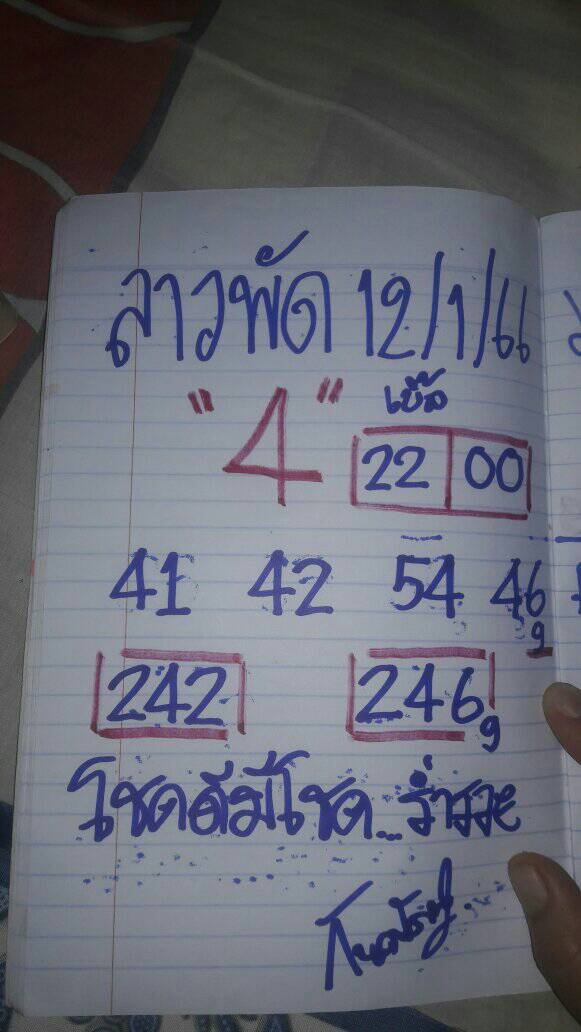 ลาวพัด 12/1/66
"4" เบิ้ล
22 00
41 42 54 46
9
242 246
9
โชคดีมีโชค... ร่ำรวย